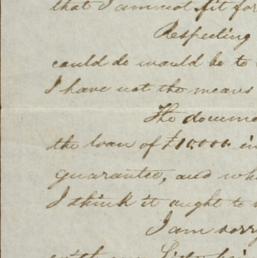 that I am not fit for
Respecting
could do would be to
I have not the means
The docume
the loan of £10000 in
guarantee, and wh
I think it ought to
I am sorry
with